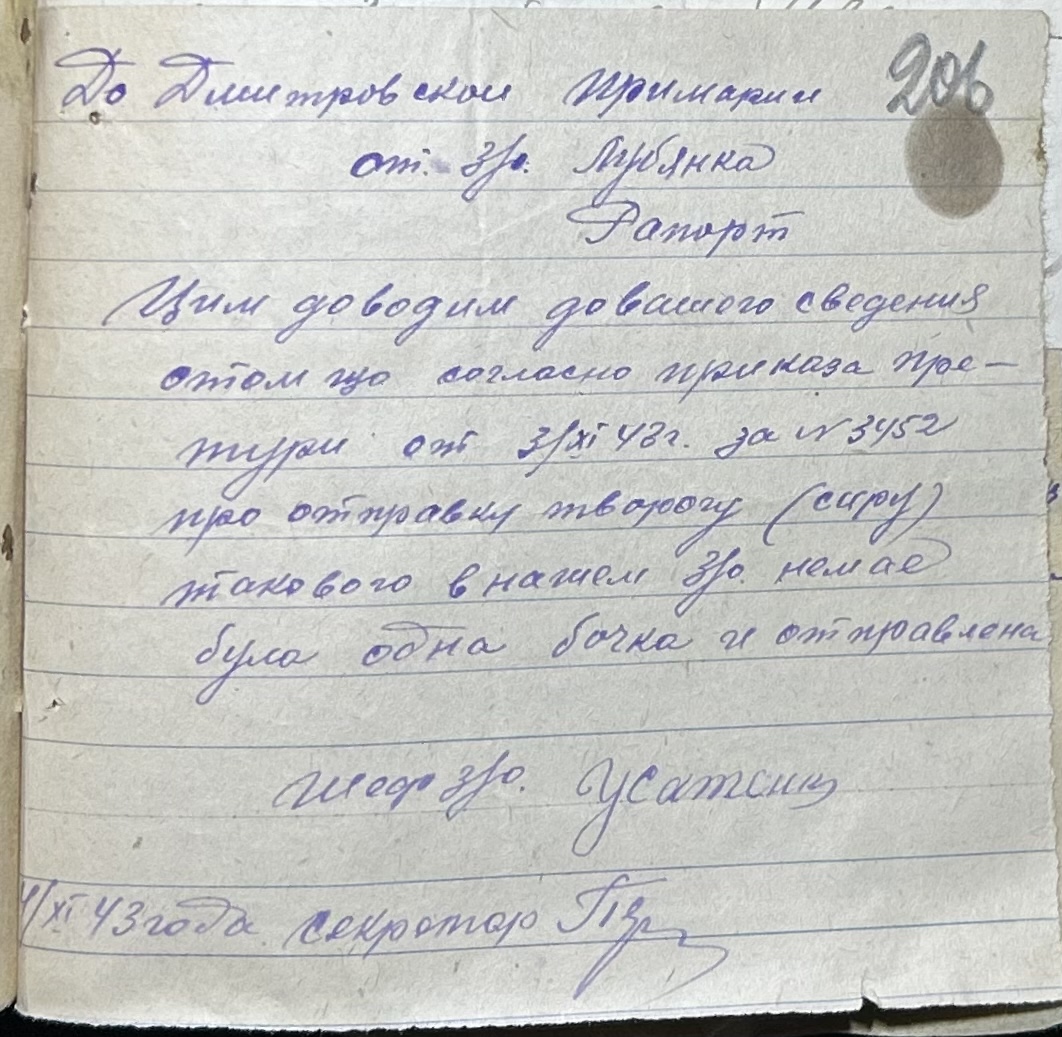 206
До Дмитровской примарии
от. з/о. Лубянка
Рапорт
Цим доводим довашого сведения
отом що согласно приказа пре-
тури от 3/XI 43г. за N 3452
про отправку творогу (сиру)
такового в нашем з/о. немае
була одна бочка и отправлена
Шеф з/о.
/XI 43 года секротар